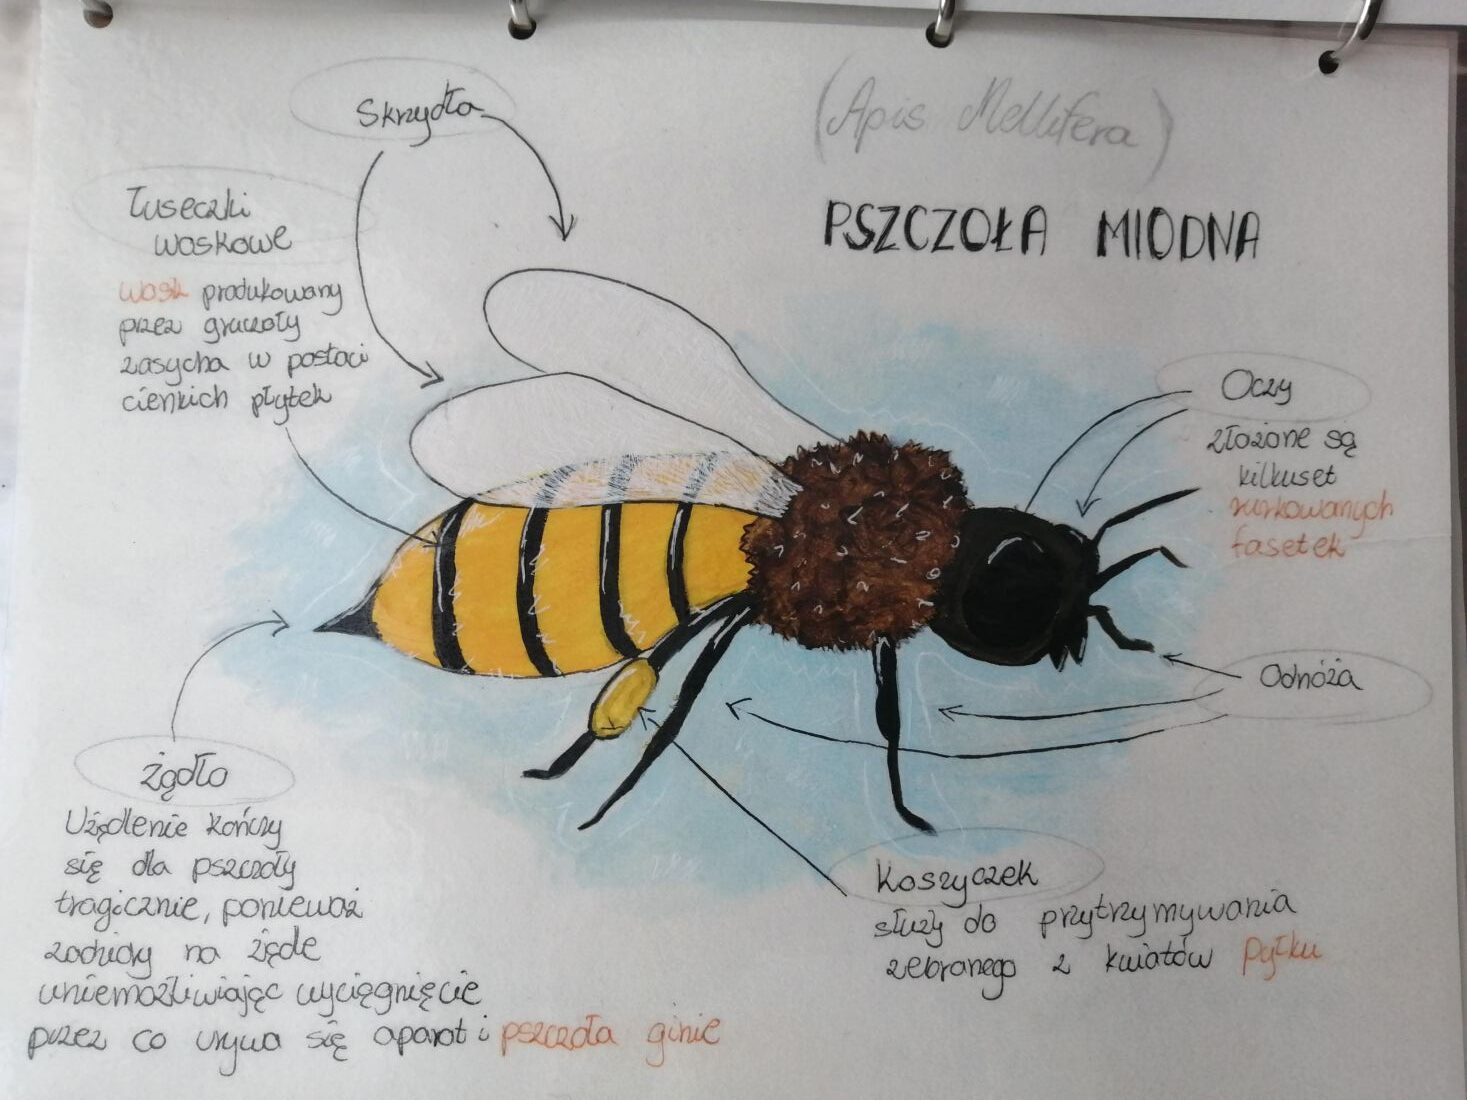 (Apis Mellifera)
PSZCZOŁA MIODNA
Skrzydła
Łuseczki
woskowe
wosk produkowany
przez gruczoły
zasycha w postaci
cienkich płytek
Oczy
złożone są
kilkuset
rurkowanych
fasetek
Odnóża
Żądło
Użądlenie kończy
się dla pszczoły
tragicznie, ponieważ
zadziory na żądle
uniemożliwiając wyciągnięcie
przez co urywa się aparat i pszczoła ginie
Koszyczek
służy do przytrzymywania
zebranego z kwiatów pyłku